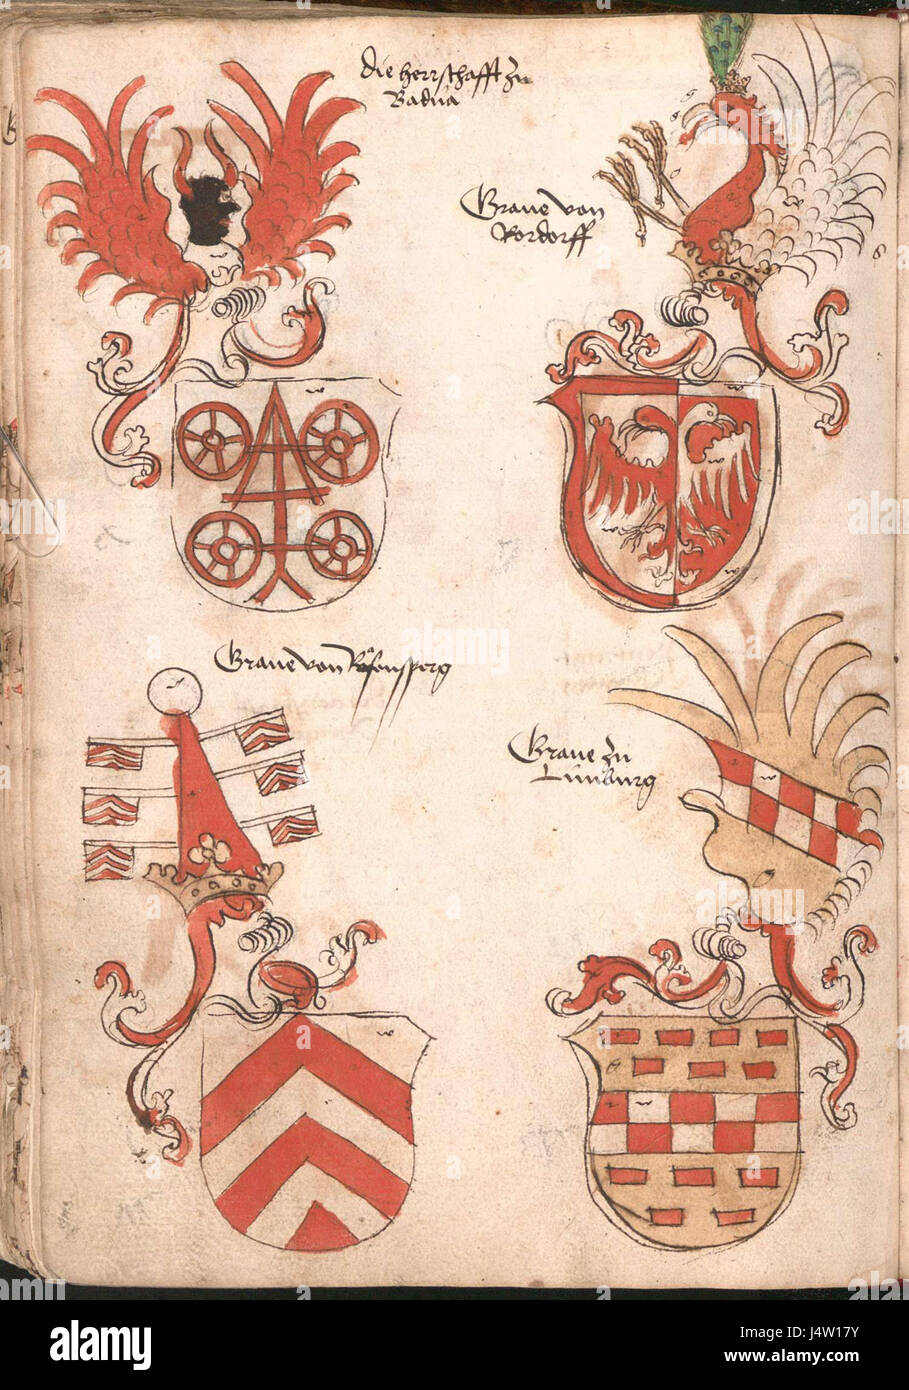 die herrschafft zu
Badua
Graue von
Rordorff
Graue von Räfensperg
Graue zu
Limburg
alamy
Image ID: J4W17Y
www.alamy.com